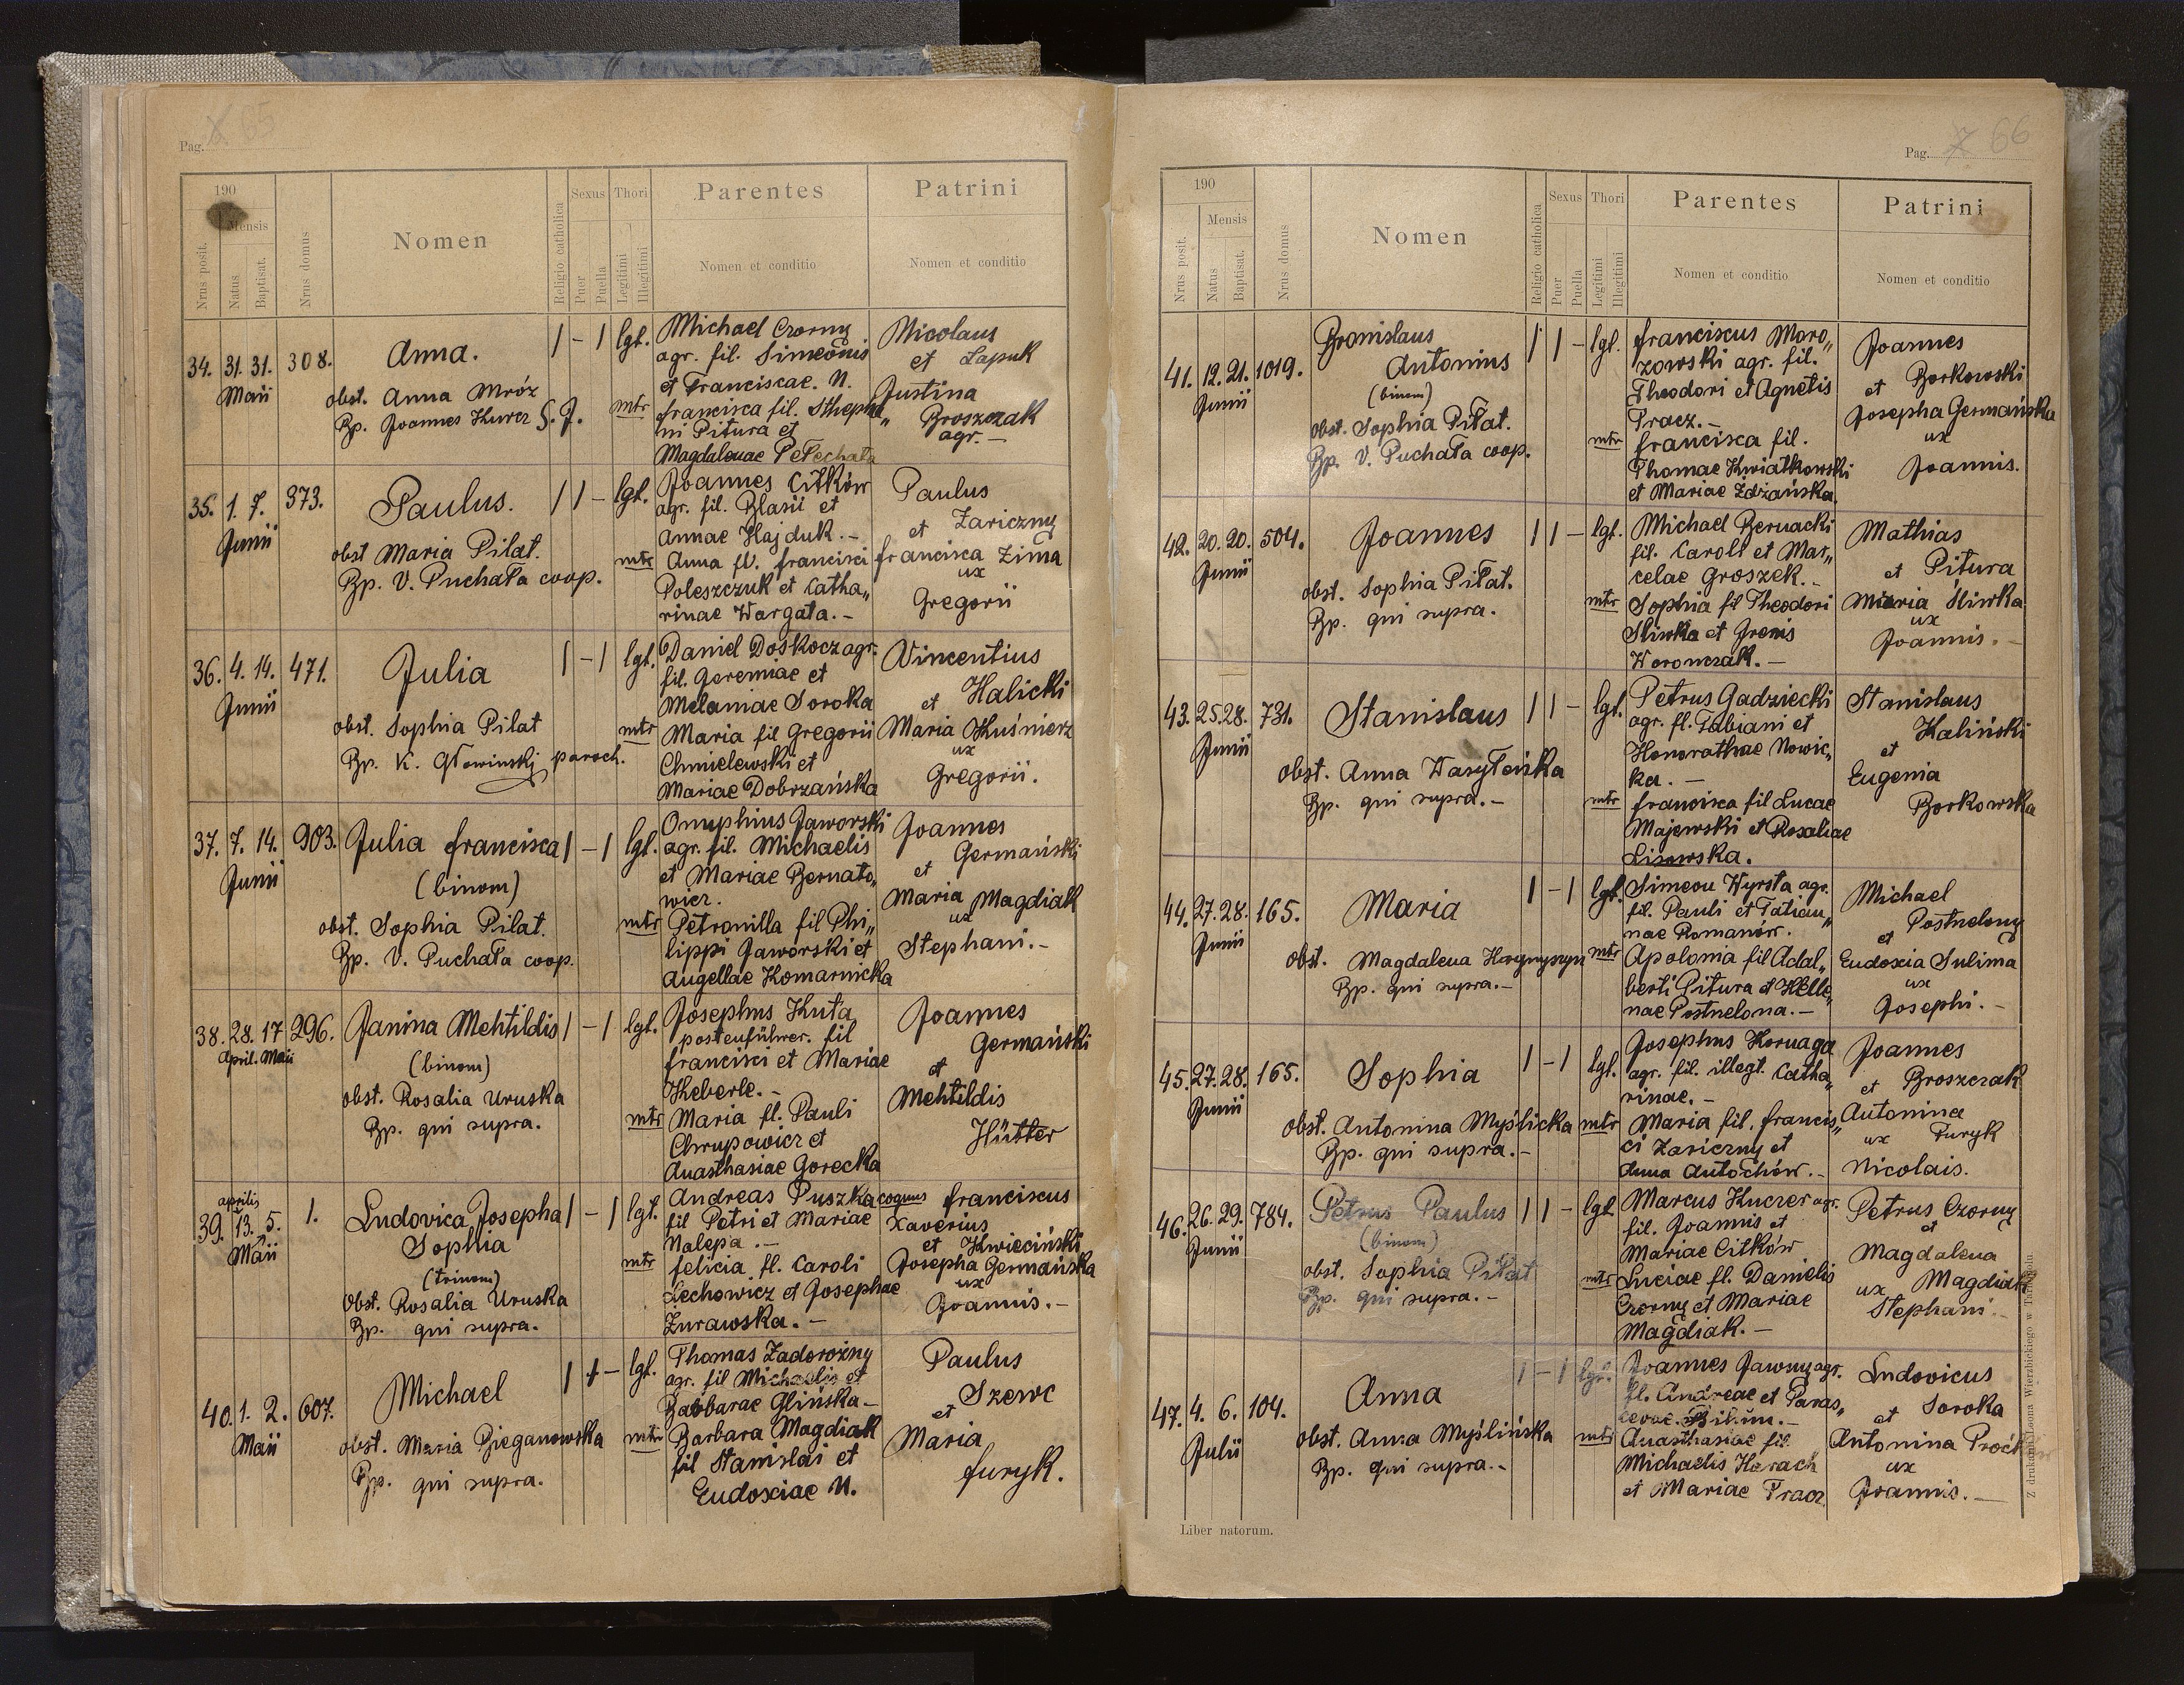 Pag. 65
190
Mensis
Nrus posit.
Natus
Baptisat.
Nrus domus
Nomen
Religio catholica
Sexus
Puer
Puella
Thori
Legitimi
Illegitimi
Parentes
Nomen et conditio
Patrini
Nomen et conditio
34. 31. 31. 308.
Maii
Anna.
obst. Anna Mróz
Bp. Joannes Kurcz S. J.
1 - 1 lgt.
Michael Czorny
agr. fil. Simeonis
et Franciscae. N.
mtr francisca fil. Stepha„
ni Pitura et
Magdalenae Pełechata
Nicolaus
et Łapuk
Justina
Broszczak
agr. -
35. 1. 7. 373.
Junii
Paulus.
obst Maria Pilat.
Bp. V. Puchała coop.
1 1 - lgt.
Joannes Citków
agr. fil. Blasii et
Annae Hajduk. -
mtr Anna fl. francisci
Poleszczuk et Catha„
rinae Wargata. -
Paulus
et Zariczny
francisca Zima
ux
Gregorii
36. 4. 14. 471.
Junii
Julia
obst. Sophia Pilat
Bp. K. Głowinski paroch.
1 - 1 lgt.
Daniel Doskocz agr.
fil. Jeremiae et
Melaniae Soroka
mtr Maria fil Gregorii
Chmielewski et
Mariae Dobrzańska
Vincentius
et Halicki
Maria Kuśnierz
ux
Gregorii.
37. 7. 14. 903.
Junii
Julia francisca
(binom)
obst. Sophia Pilat.
Bp. V. Puchała coop.
1 - 1 lgt.
Onuphius Jaworski
agr. fil. Michaelis
et Mariae Bernato„
wicz.
mtr Petronilla fil Phi„
lippi Jaworski et
Angellae Komarnicka
Joannes
et Germański
Maria Magdiak
ux
Stephani. -
38. 28. 17 296.
April. Maii
Janina Mehtildis
(binom)
obst. Rosalia Uruska
Bp. qui supra.
1 - 1 lgt.
Josephus Kuta
postenführer. fil
francisci et Mariae
Keberle. -
mtr Maria fl. Pauli
Chrupowicz et
Anasthasiae Gorecka
Joannes
Germański
et
Mehtildis
Hütter
aprilis
39. 13. 5. 1.
Maii
Ludovica Josepha
Sophia
(trinom)
Obst. Rosalia Uruska
Bp. qui supra.
1 - 1 lgt.
Andreas Puszka coquus
fil Petri et Mariae
Nalepa. -
mtr felicia fl. Caroli
Lechowicz et Josephae
Żurawska. -
franciscus
Xaverius
et Kwieciński
Josepha Germańska
ux
Joannis. -
40. 1. 2. 607.
Maii
Michael
obst. Maria Bieganowska
Bp. qui supra.
1 1 - lgt.
Thomas Zadorożny
agr. fil Michaelis et
Barbarae Glińska -
mtr Barbara Magdiak
fil Stanislai et
Eudoxiae N.
Paulus
Szewc
et
Maria
furyk.
Pag. 66
190
Mensis
Nrus posit.
Natus
Baptisat.
Nrus domus
Nomen
Religio catholica
Sexus
Puer
Puella
Thori
Legitimi
Illegitimi
Parentes
Nomen et conditio
Patrini
Nomen et conditio
41. 12. 21. 1019.
Junii
Bronislaus
Antonius
(binom)
obst. Sophia Piłat.
Bp. V. Puchała coop.
1 1 - lgt.
franciscus Moro„
zowski agr. fil.
Theodori et Agnetis
Tracz. -
mtr francisca fil.
Thomae Kwiatkowski
et Mariae Zdżańska.
Joannes
et Borkowski
Josepha Germańska
ux
Joannis.
42. 20. 20. 504.
Junii
Joannes
obst. Sophia Piłat.
Bp. qui supra.
1 1 - lgt.
Michael Bernacki
fil. Caroli et Mar„
celae Groszek. -
mtr Sophia fil Theodori
Sliwka et Irenis
Woronczak. -
Mathias
et Pitura
Maria Śliwka
ux
Joannis. -
43. 25. 28. 731.
Junii
Stanislaus
obst. Anna Wasyleńka
Bp. qui supra. -
1 1 - lgt.
Petrus Gadziecki
agr. fl. Fabiani et
Honorathae Nowic„
ka. -
mtr francisca fil Lucae
Majewski et Rosaliae
Lisowska.
Stanislaus
Kaliński
et
Eugenia
Borkowska
44. 27. 28. 165.
Junii
Maria
obst. Magdalena
Bp. qui supra. -
1 - 1 lgt.
Simeon Wyrsta agr.
fil. Pauli et Tatian„
nae Romanów.
mtr Apolonia fil Adal„
berti Pitura et Helle„
nae Postnelona. -
Michael
et Postnelony
Eudoxia Sulima
ux
Josephi. -
45. 27. 28. 165.
Junii
Sophia
obst. Antonina Myślicka
Bp. qui supra. -
1 - 1 lgt.
Josephus Kornaga
agr. fil. illegt. Catha„
rinae. -
mtr Maria fil. francis„
ci Zariczny et
Anna Antochów. -
Joannes
et Broszczak
Antonina
ux Furyk
Nicolais.
46. 26. 29. 784.
Junii
Petrus Paulus
(binom)
obst. Sophia Piłat
Bp. qui supra. -
1 1 - lgt
Marcus Kuczer agr.
fil. Joannis et
Mariae Citków
mtr Luciae fl. Danielis
Czorny et Mariae
Magdiak. -
Petrus Czorny
et
Magdalena
ux Magdiak
Stephani. -
47. 4. 6. 104.
Julii
Anna
obst. Anna Myślińska
Bp. qui supra. -
1 - 1 lgt.
Joannes Jawny agr.
fl. Andreae et Paras„
cevae. -
mtr Anasthasiae fil
Michaelis Harach
et Mariae Tracz
Ludovicus
et Soroka
Antonina Proć
ux
Joannis. -
Liber natorum.
Z drukarni Leona Wierzbickiego w Tarnopolu.